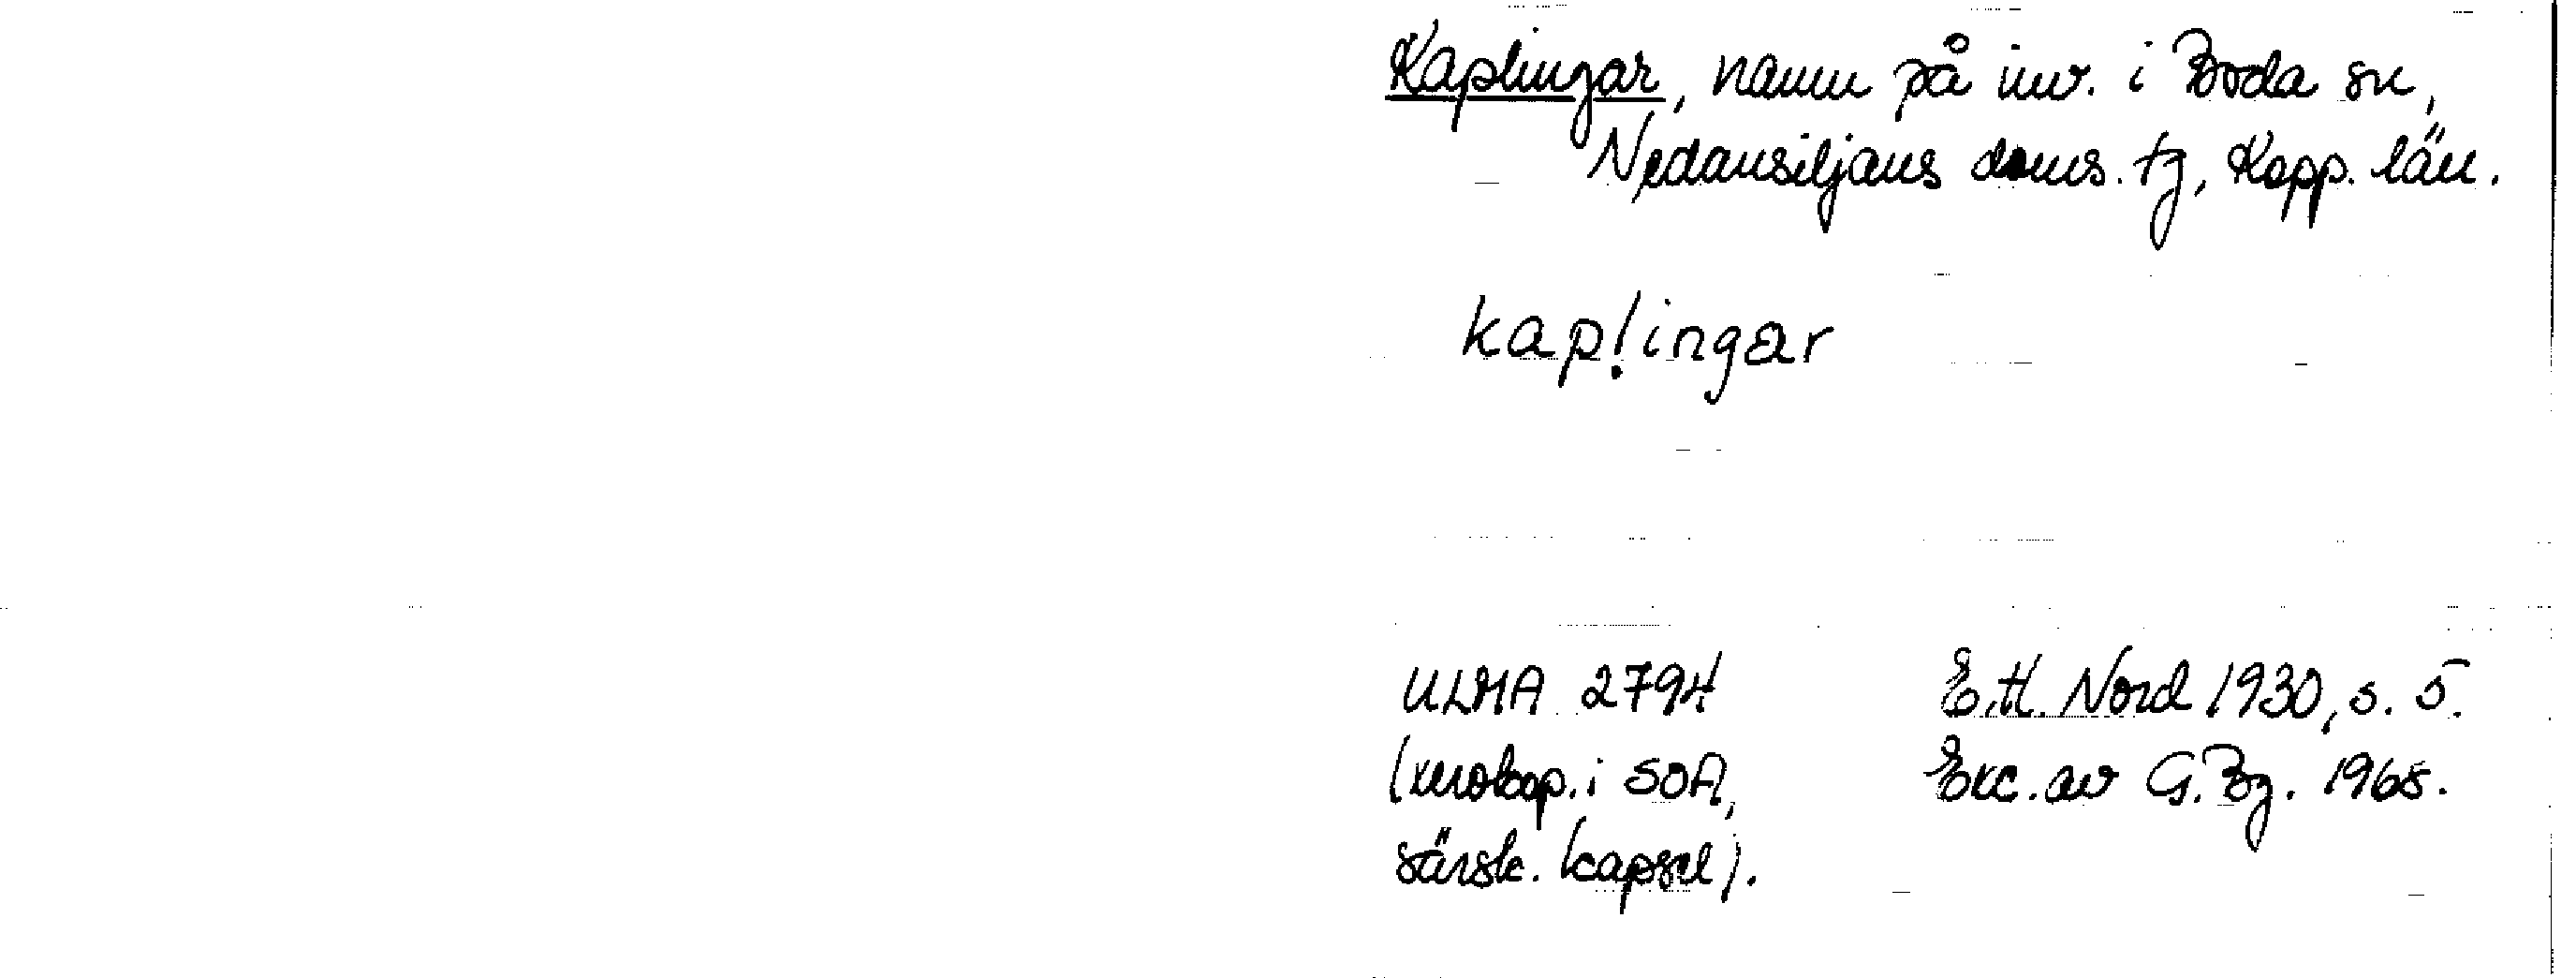 Kaplingar, namn på inv. i Boda sn,
Nedansiljans doms. tg, Kopp. län.
kapḷingar
ULMA 2794
(xerokop. i SOA,
särsk. kapsel).
E.tl. Nord 1930, s. 5.
Exc. av G. Bg. 1965.